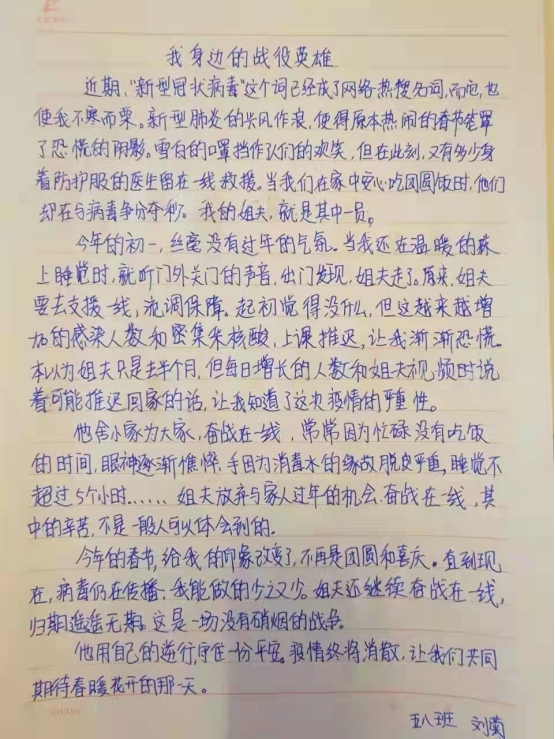 我身边的战役英雄
近期,"新型冠状病毒"这个词已经成了网络热搜名词,而它,也
使我不寒而栗。新型肺炎的兴风作浪,使得原本热闹的春节笼罩
了恐慌的阴影。雪白的口罩挡住了人们的欢笑,但在此刻,又有多少身
着防护服的医生留在一线救援。当我们在家中安心吃团圆饭时,他们
却在与病毒争分夺秒。我的姐夫,就是其中一员。
今年的初一,丝毫没有过年的气氛。当我还在温暖的床
上睡觉时,就听门外关门的声音,出门发现,姐夫走了。原来,姐夫
要去支援一线,流调保障。起初觉得没什么,但这越来越增
加的感染人数和密集采核酸,上课推迟,让我渐渐恐慌。
本以为姐夫只是去半个月,但每日增长的人数和姐夫视频时说
着可能推迟回家的话,让我知道了这次疫情的严重性。
他舍小家为大家,奋战在一线,常常因为忙碌没有吃饭
的时间,眼神逐渐憔悴,手因为消毒水的缘故脱皮严重,睡觉不
超过5个小时......姐夫放弃与家人过年的机会,奋战在一线,其
中的辛苦,不是一般人可以体会到的。
今年的春节,给我的印象改变了,不再是团圆和喜庆。直到现
在,病毒仍在传播,我能做的少之又少。姐夫还继续奋战在一线,
归期遥遥无期。这是一场没有硝烟的战争。
他用自己的逆行,守住一份平安。疫情终将消散,让我们共同
期待春暖花开的那一天。
五八班 刘菊